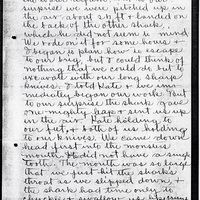 surprise we were pitched up in
the air about 25 ft & landed on
the back of the other shark,
which he did not seem to mind
We rode on it for some hours &
I began to plan how to escape
to our brig, but I could think of
nothing that we could do but to
with our long sharp
knives. I told Nate & we im-
mediately began our work. But
to our surprise the shark gave
one mighty & sent us up
in the air, Nate holding to
our feet, & both of us holding
to our knives. We came down
head first into the monster's
mouth. He did not have a single
tooth. The mouth was so large
that we first hit the shark's
throat & as we slipped down,
the shark had time only to
& swallow us